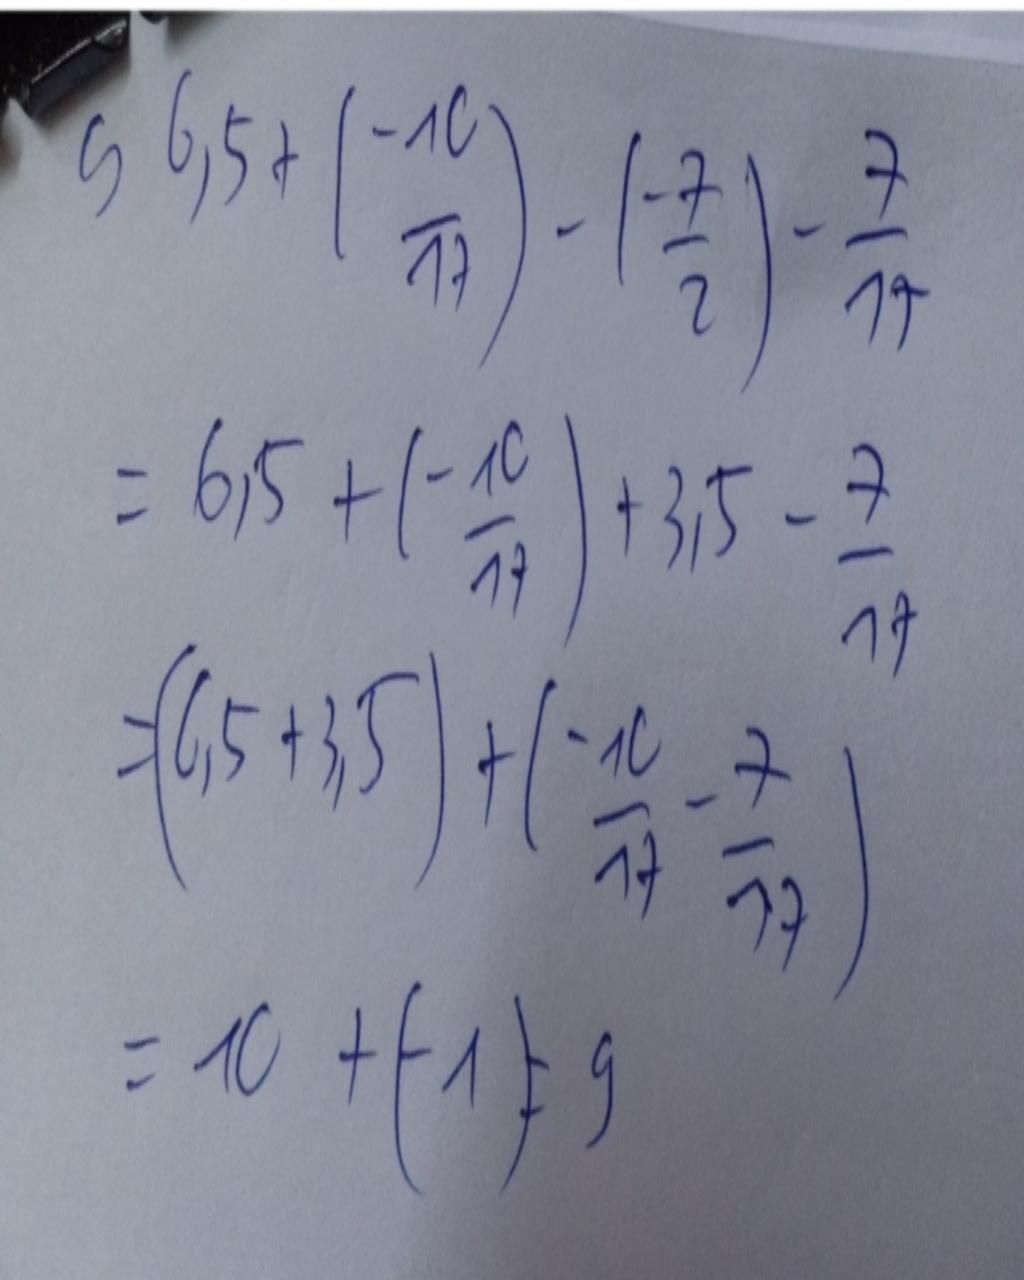 c, 6,5 + (-10/17) - (-7/2) - 7/17
= 6,5 + (-10/17) + 3,5 - 7/17
= (6,5 + 3,5) + (-10/17 - 7/17)
= 10 + (-1) = 9